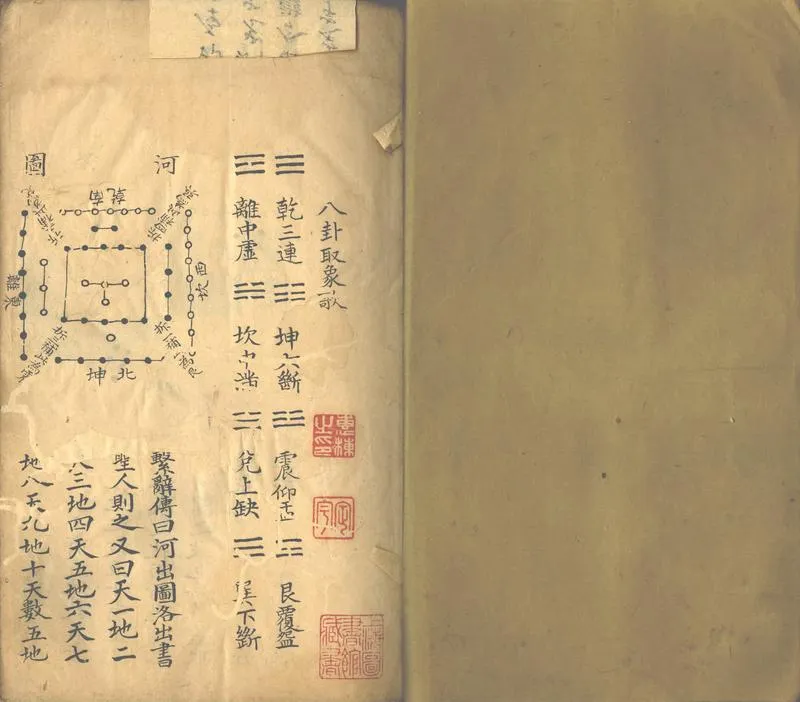 八卦取象歌
乾三連 坤六斷 震仰盂 艮覆盌
離中虛 坎中滿 兌上缺 巽下斷
河圖
乾南
西坎
離東
北坤
繫辭傳曰河出圖洛出書
聖人則之又曰天一地二
天三地四天五地六天七
地八天九地十天數五地
惠棟之印
定宇
上海圖書館藏書